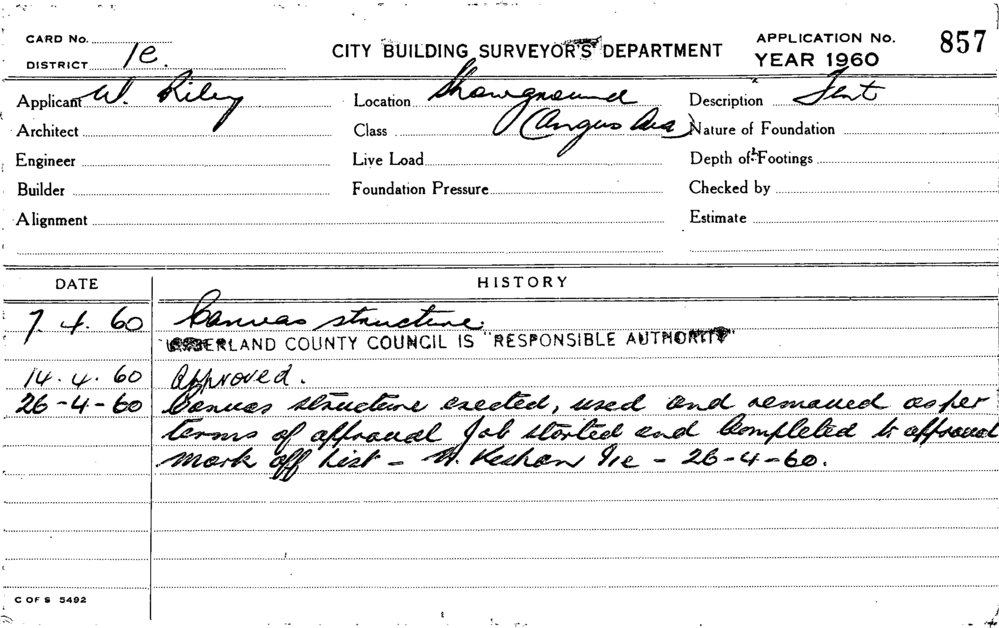 CARD No.
DISTRICT 1e.
CITY BUILDING SURVEYOR'S DEPARTMENT
APPLICATION No. 857
YEAR 1960
Applicant W. Riley
Location Showground
Description Tent
Architect
Class (Angus Ave)
Nature of Foundation
Engineer
Live Load
Depth of Footings
Builder
Foundation Pressure
Checked by
Alignment
Estimate
DATE
HISTORY
7.4.60 Canvas structure.
ERLAND COUNTY COUNCIL IS "RESPONSIBLE AUTHORITY"
14.4.60 Approved.
26-4-60 Canvas structure erected, used and removed as per
terms of approval Job started and Completed to approval
Mark off List - W. 1e - 26-4-60.
C OF S 5492